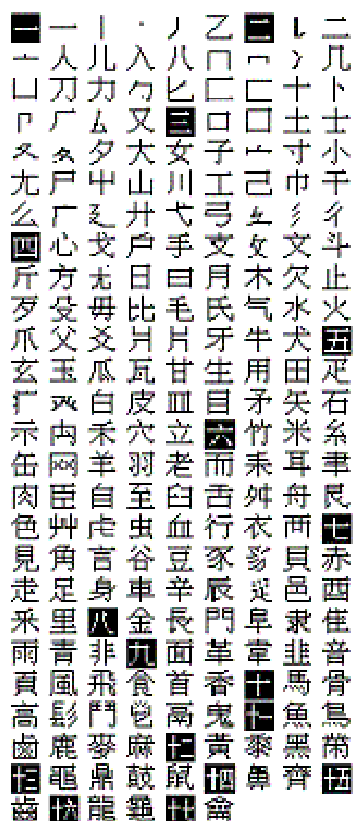 一 一 丨 丶 丿 乙 二 亅 二
亠 人 儿 入 八 冂 冖 冫 几
凵 刀 力 勹 匕 匚 匸 十 卜
卩 厂 厶 又 三 口 囗 土 士
夂 夊 夕 大 女 子 宀 寸 小
尢 尸 屮 山 川 工 己 巾 干
幺 广 廴 廾 弋 弓 彑 彡 彳
四 心 戈 戶 手 支 攴 文 斗
斤 方 无 日 曰 月 木 欠 止
歹 殳 毋 比 毛 氏 气 水 火
爪 父 爻 爿 片 牙 牛 犬 五
玄 玉 瓜 瓦 甘 生 用 田 疋
疒 癶 白 皮 皿 目 矛 矢 石
示 禸 禾 穴 立 六 竹 米 糸
缶 网 羊 羽 老 而 耒 耳 聿
肉 臣 自 至 臼 舌 舛 舟 艮
色 艸 虍 虫 血 行 衣 襾 七
見 角 言 谷 豆 豕 豸 貝 赤
走 足 身 車 辛 辰 辵 邑 酉
釆 里 八 金 長 門 阜 隶 隹
雨 青 非 九 面 革 韋 韭 音
頁 風 飛 食 首 香 十 馬 骨
高 髟 鬥 鬯 鬲 鬼 十一 魚 鳥
鹵 鹿 麥 麻 十二 黃 黍 黑 黹
十三 黽 鼎 鼓 鼠 十四 鼻 齊 十五
齒 十六 龍 龜 十七 龠